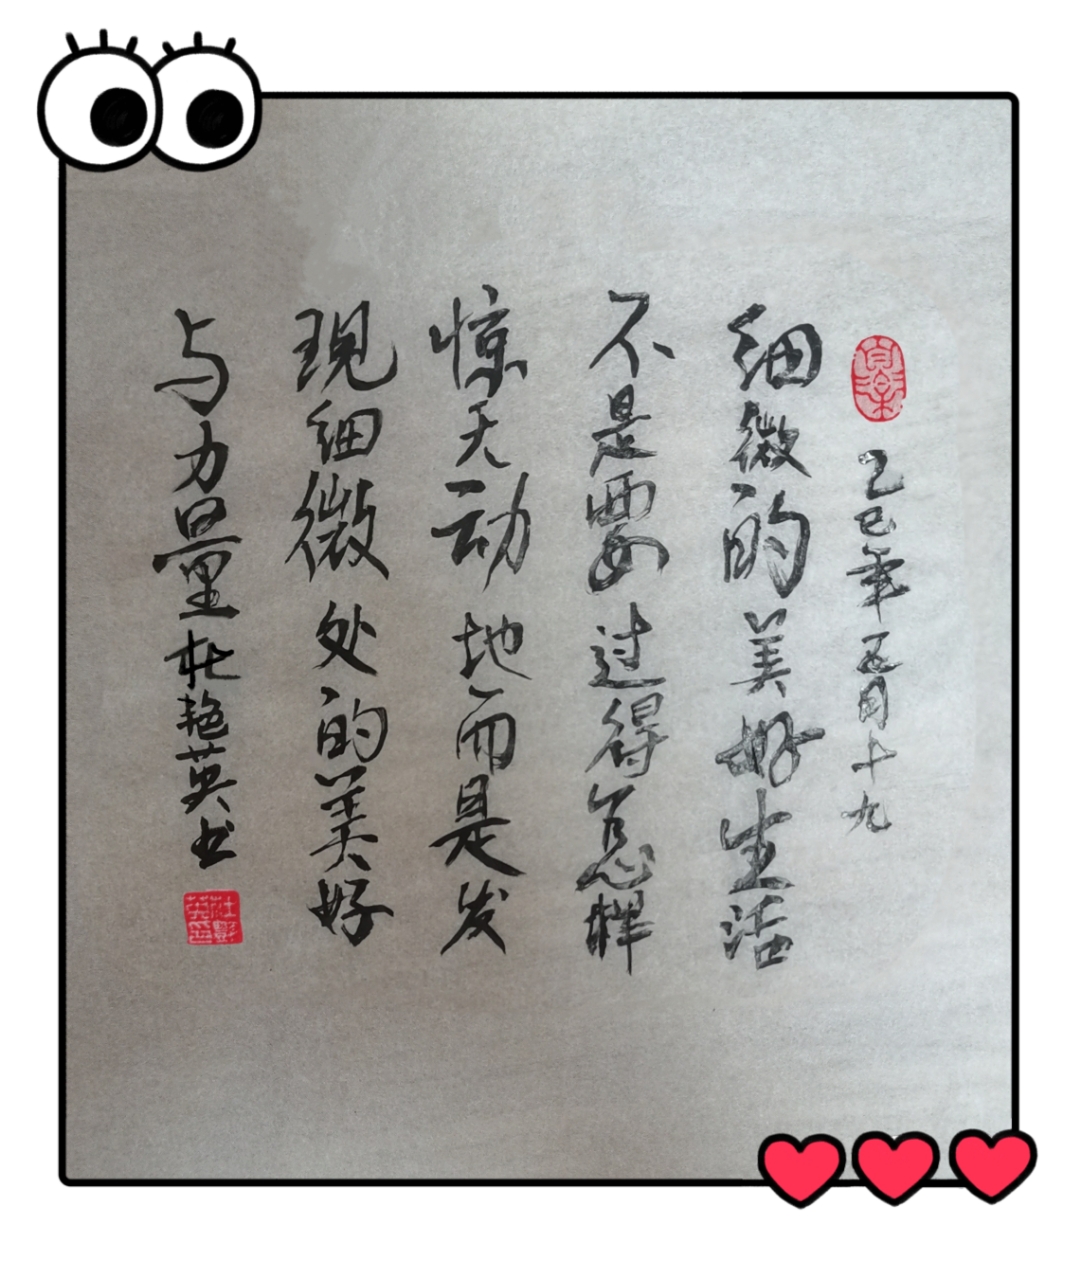 乙巳年五月十九
细微的美好生活
不是要过得怎样
惊天动地而是发
现细微处的美好
与力量杜艳英书